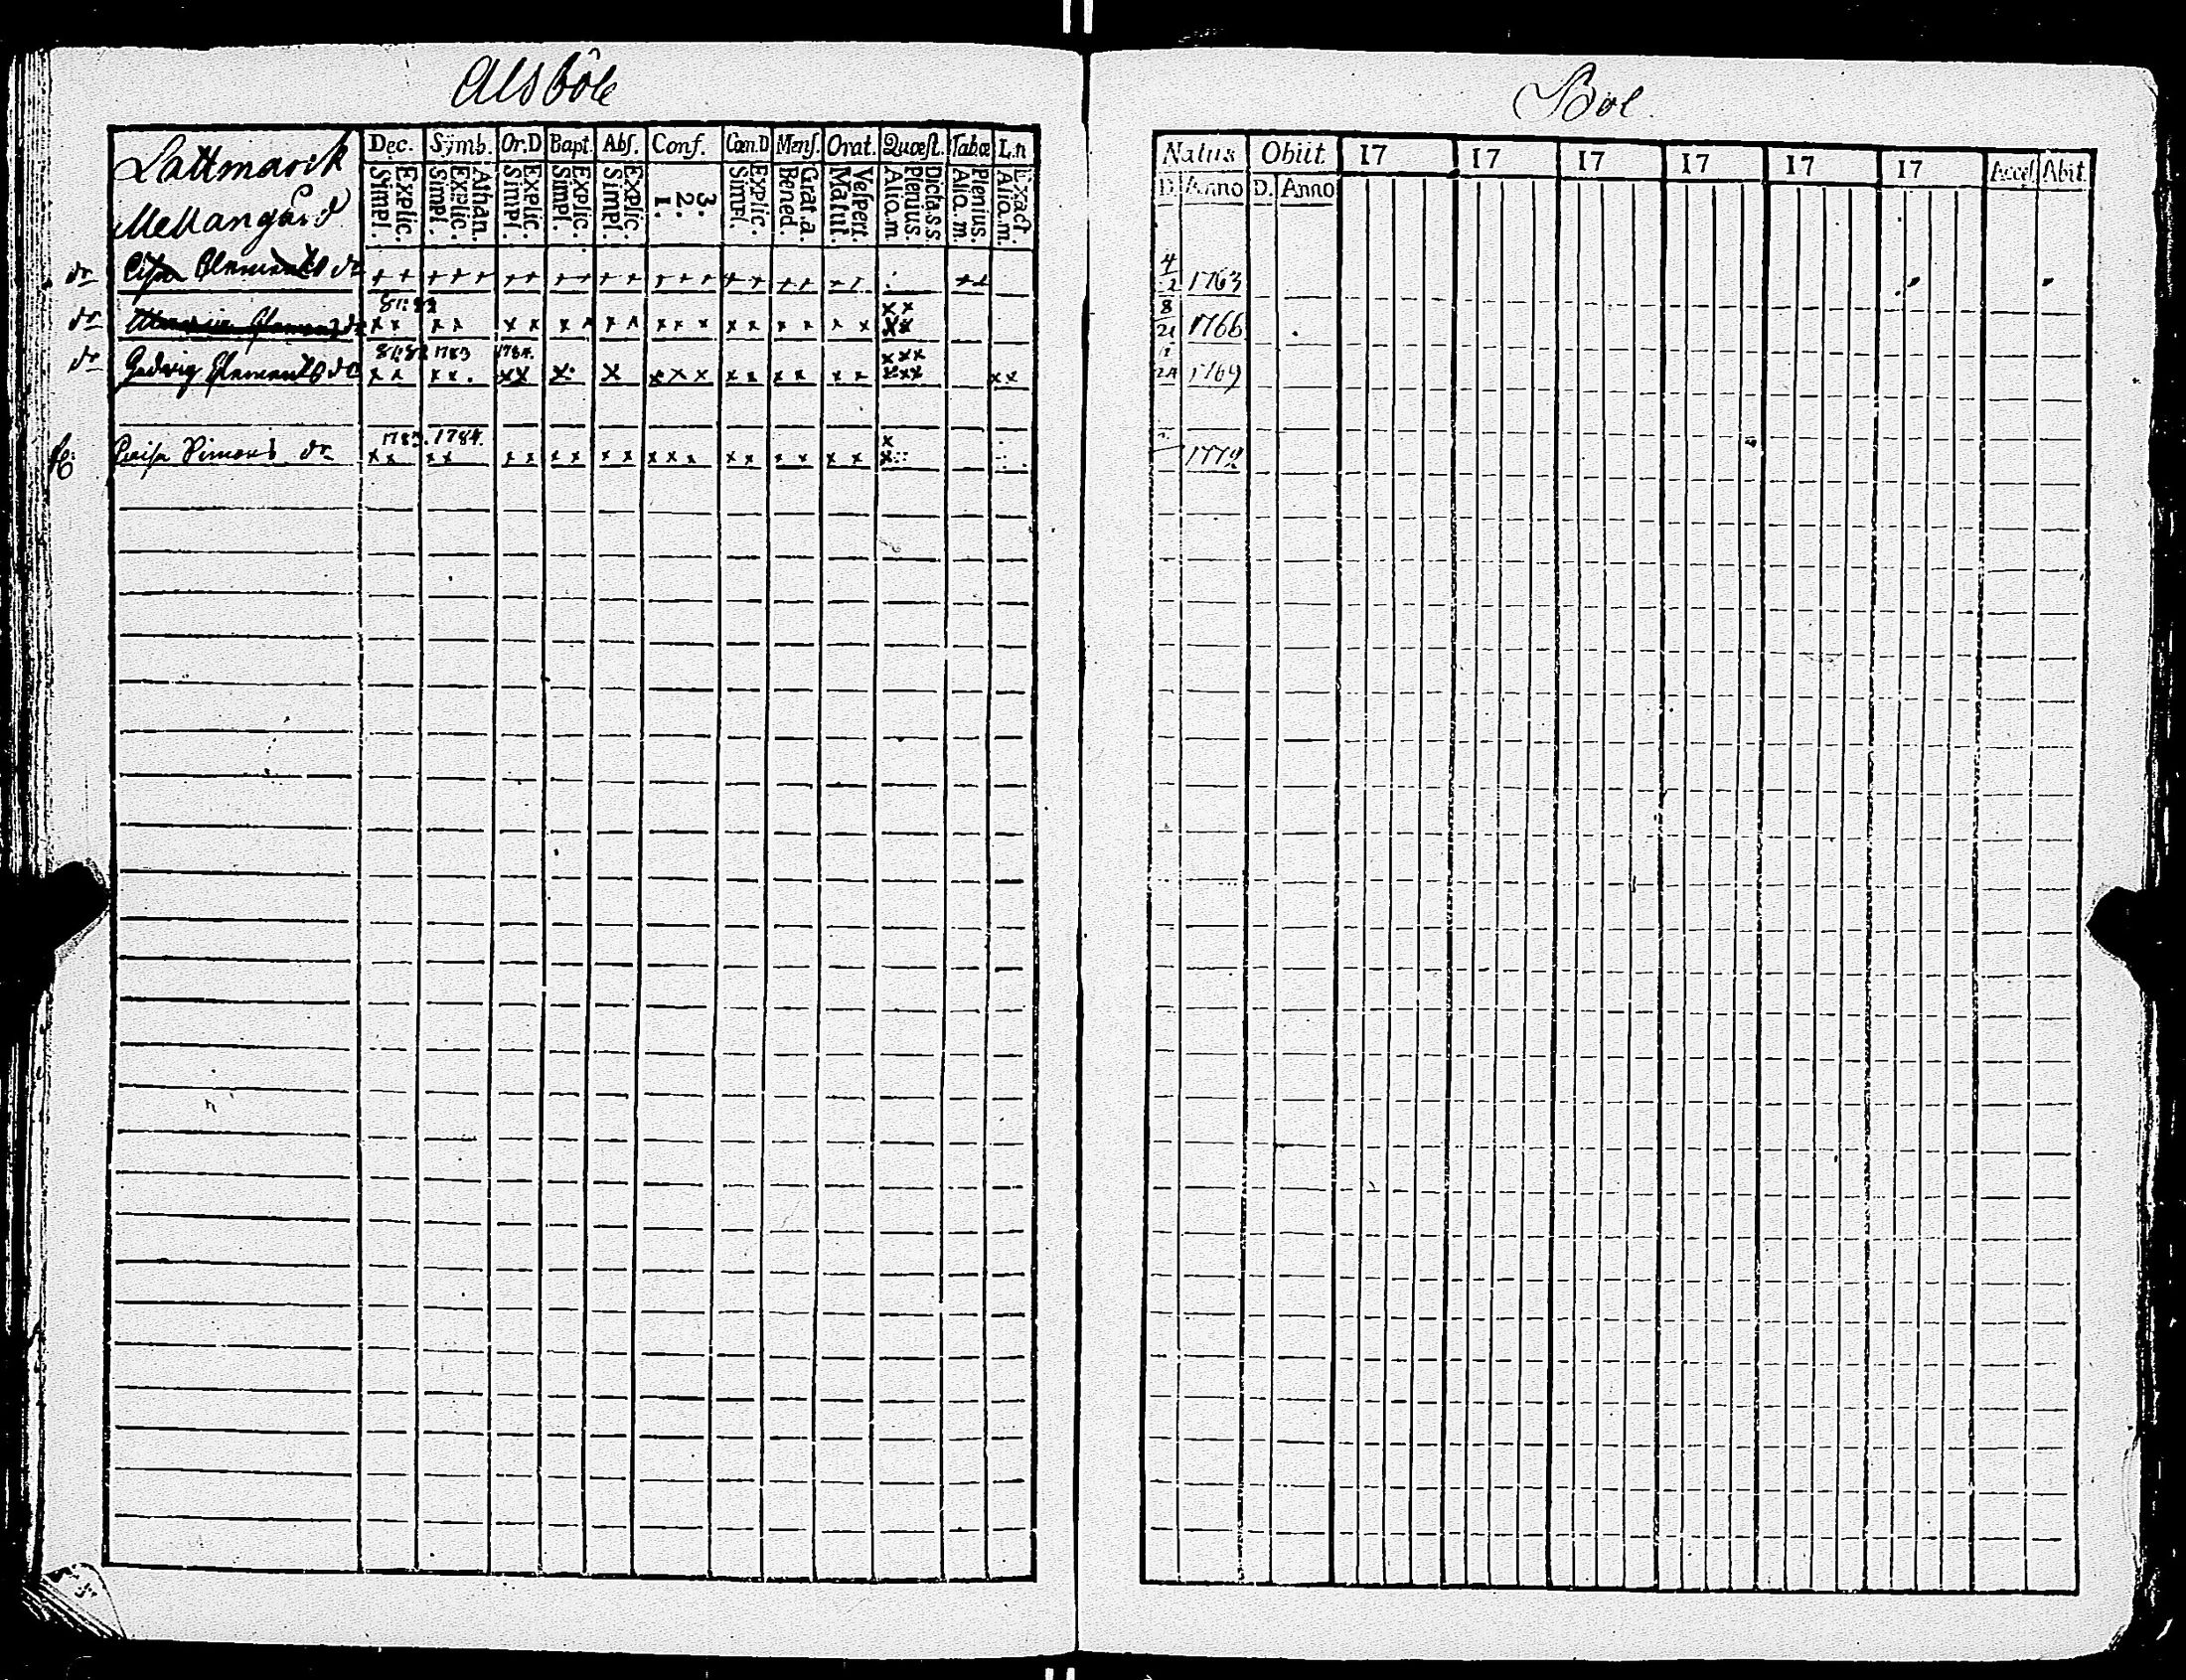 Alsböle
Lattmarck
Mellangård
Dec. Symb. Or.D Bapt. Abs. Conf. Cœn.D Mens. Orat. Quæst. Tabœ L.n
Simpl. Explic. Simpl. Explic. Athan. Simpl. Explic. Simpl. Explic. Simpl. Explic. 1. 2. 3. Simpl. Explic. Bened. Grat.a. Matut. Vesperi. Aliq.m Plenius. Dicta.s.s. Aliq.m. Plenius. Aliq.m. Exact.
dr Lisa Clements dr + + + + + + + + + + + + + + + + + + + + + + +
81:82
x x
dr Clements dr x x x x x x x x x x x x x x x x x x x x x
81:82 1783 1784.
x x x
dr Hedvig Clements dr x x x x . x x x x x x x x x x x x x x x x x x x
1783. 1784.
x
Simons dr x x x x x x x x x x x x x x x x x x x x
Böl.
Natus Obiit 17 17 17 17 17 17 Accel. Abit.
D. Anno D. Anno
4
1763
8
21 1766
24 1769
1772